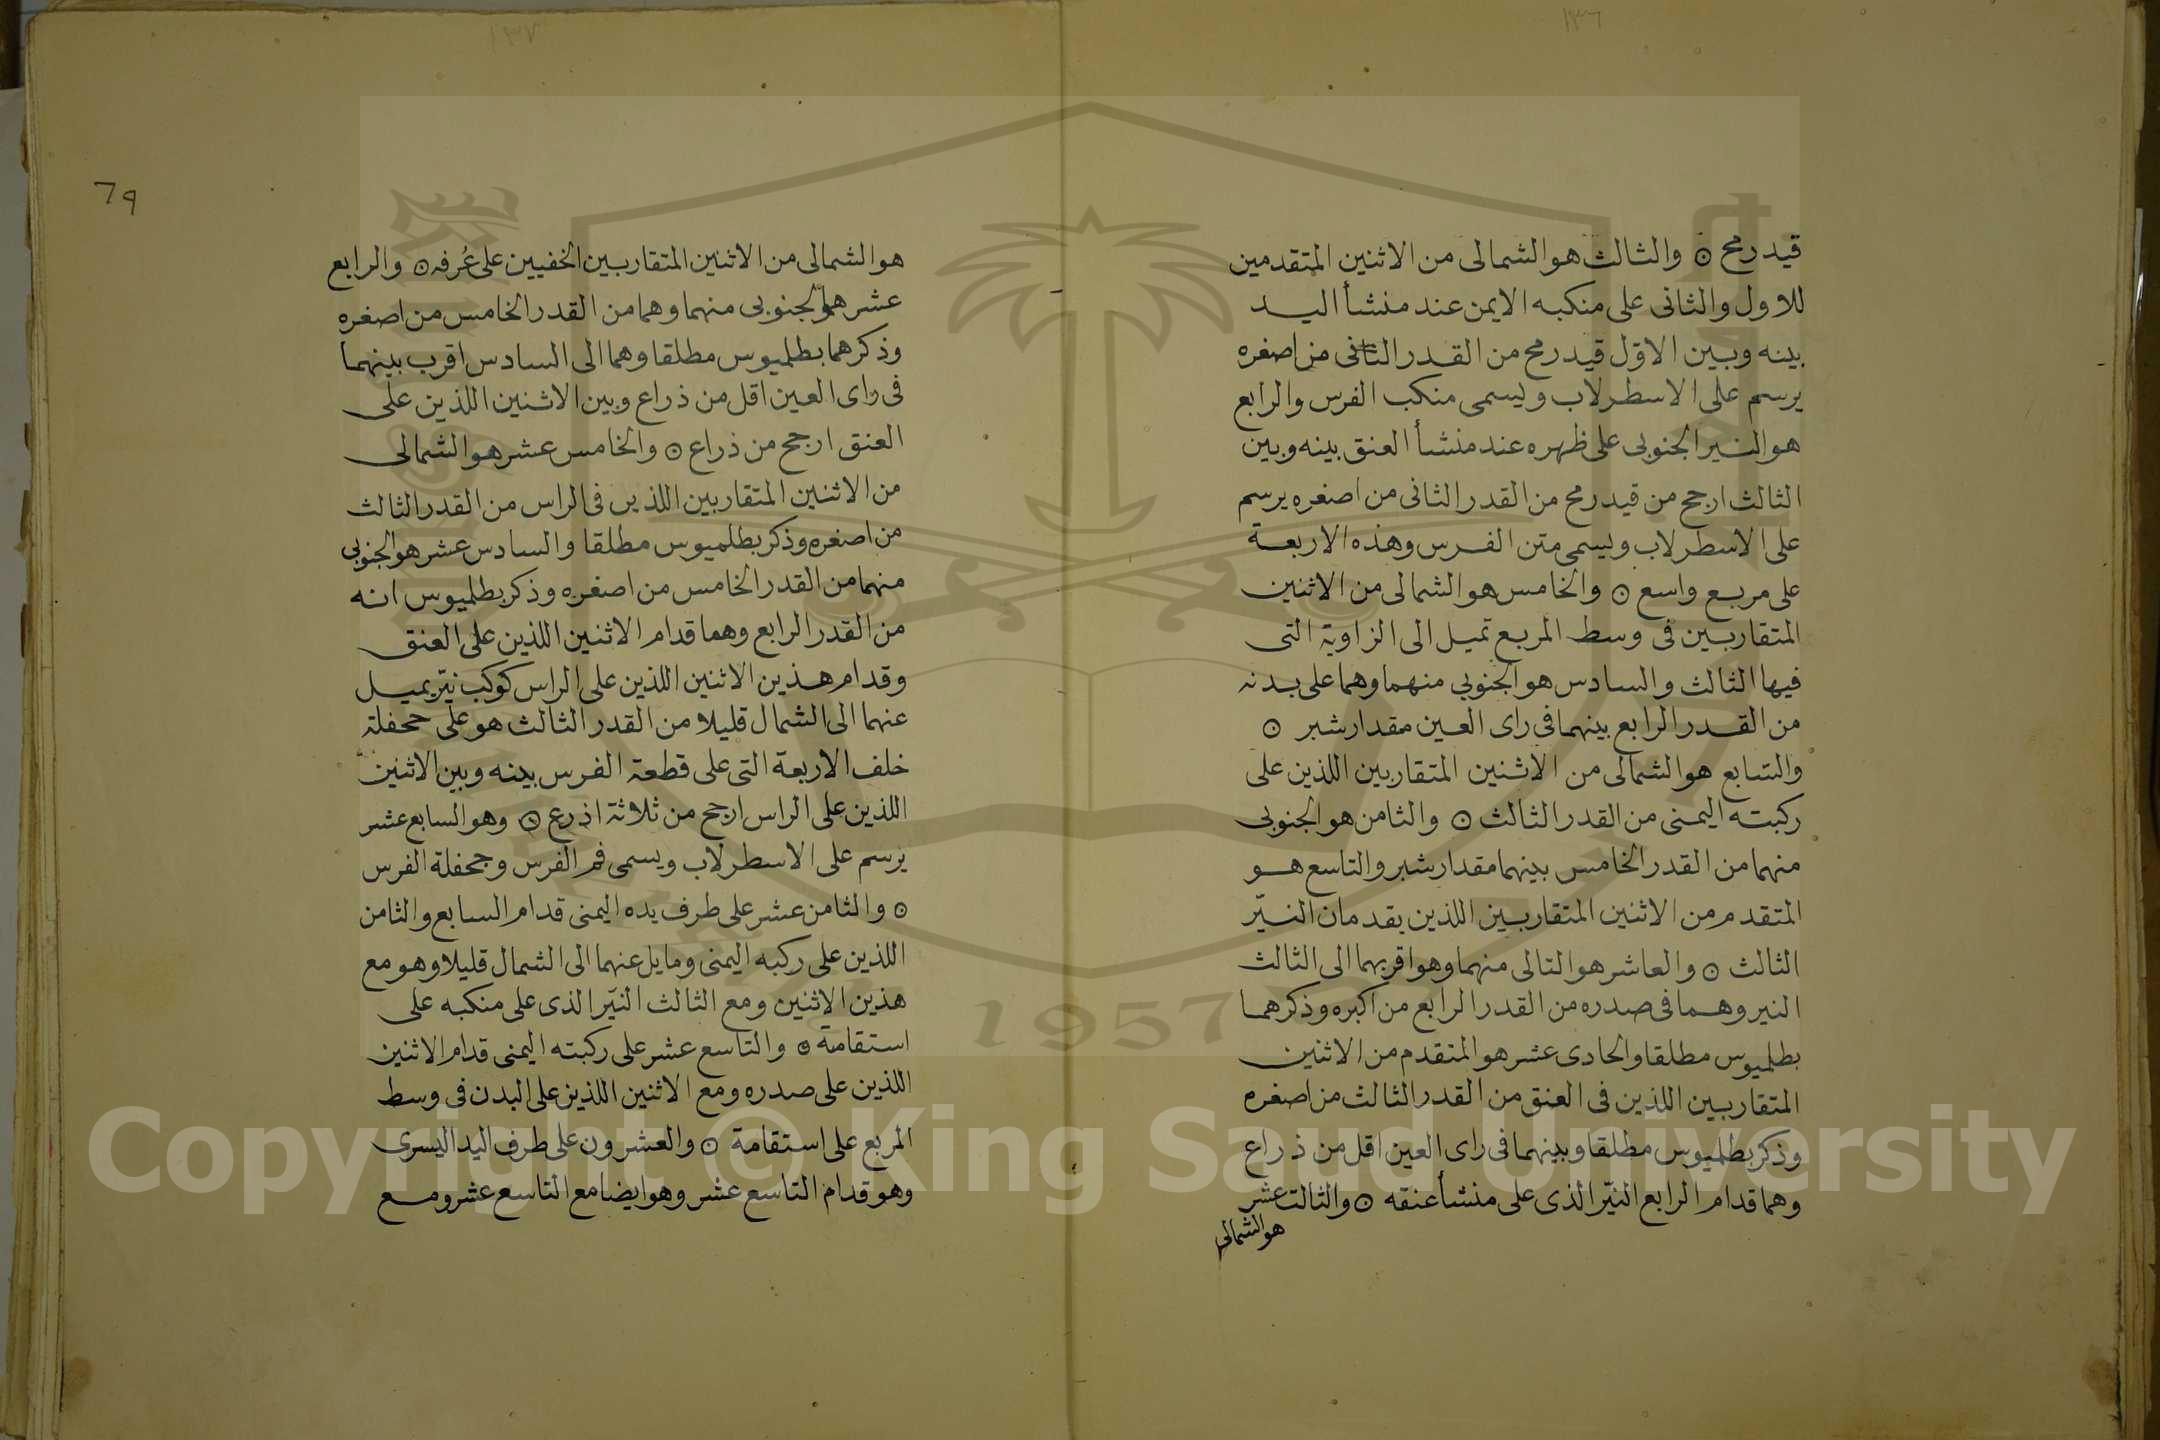 ١٣٦
قيد رمح ⊙ والثالث هو الشمالى من الاثنين المتقدمين
للاول والثانى على منكبه الايمن عند منشأ اليد
بينه وبين الاوّل قيد رمح من القدر الثانى من اصغره
يرسم على الاسطرلاب ويسمى منكب الفرس والرابع
هو النير الجنوبى على ظهره عند منشأ العنق بينه وبين
الثالث ارجح من قيد رمح من القدر الثانى من اصغره يرسم
على الاسطرلاب ويسمى متن الفرس وهذه الاربعة
على مربع واسع ⊙ والخامس هو الشمالى من الاثنين
المتقاربين فى وسط المربع تميل الى الزاوية التى
فيها الثالث والسادس هو الجنوبي منهما وهما على بدنه
من القدر الرابع بينهما فى راى العين مقدار شبر ⊙
والسابع هو الشمالى من الاثنين المتقاربين اللذين على
ركبته اليمنى من القدر الثالث ⊙ والثامن هو الجنوبى
منهما من القدر الخامس بينهما مقدار شبر والتاسع هو
المتقدم من الاثنين المتقاربين اللذين يقدمان النيّر
الثالث ⊙ والعاشر هو التالى منهما وهو اقربهما الى الثالث
النير وهما فى صدره من القدر الرابع من اكبره وذكرهما
بطلميوس مطلقا والحادى عشر هو المتقدم من الاثنين
المتقاربين اللذين فى العنق من القدر الثالث من اصغره
وذكر بطلميوس مطلقا وبينهما فى راى العين اقل من ذراع
وهما قدام الرابع النيّر الذى على منشأ عنقه ⊙ والثالث عشر
هو الشمالى
١٣٧
٦٩
هو الشمالى من الاثنين المتقاربين الخفيين على عُرفه ⊙ والرابع
عشر هو الجنوبى منهما وهما من القدر الخامس من اصغره
وذكرهما بطلميوس مطلقا وهما الى السادس اقرب بينهما
فى راى العين اقل من ذراع وبين الاثنين اللذين على
العنق ارجح من ذراع ⊙ والخامس عشر هو الشمالى
من الاثنين المتقاربين اللذين فى الراس من القدر الثالث
من اصغره وذكر بطلميوس مطلقا والسادس عشر هو الجنوبى
منهما من القدر الخامس من اصغره وذكر بطلميوس انه
من القدر الرابع وهما قدام الاثنين اللذين على العنق
وقدام هذين الاثنين اللذين على الراس كوكب نيّر يميل
عنهما الى الشمال قليلا من القدر الثالث هو على جحفلة
خلف الاربعة التى على قطعة الفرس بينه وبين الاثنين
اللذين على الراس ارجح من ثلاثة اذرع ⊙ وهو السابع عشر
يرسم على الاسطرلاب ويسمى فم الفرس وجحفلة الفرس
⊙ والثامن عشر على طرف يده اليمنى قدام السابع والثامن
اللذين على ركبه اليمنى ومايل عنهما الى الشمال قليلا وهو مع
هذين الاثنين ومع الثالث النيّر الذى على منكبه على
استقامة ⊙ والتاسع عشر على ركبته اليمنى قدام الاثنين
اللذين على صدره ومع الاثنين اللذين على البدن فى وسط
المربع على استقامة ⊙ والعشرون على طرف اليد اليسرى
وهو قدام التاسع عشر وهو ايضا مع التاسع عشر ومع
1957
Copyright © King Saud University